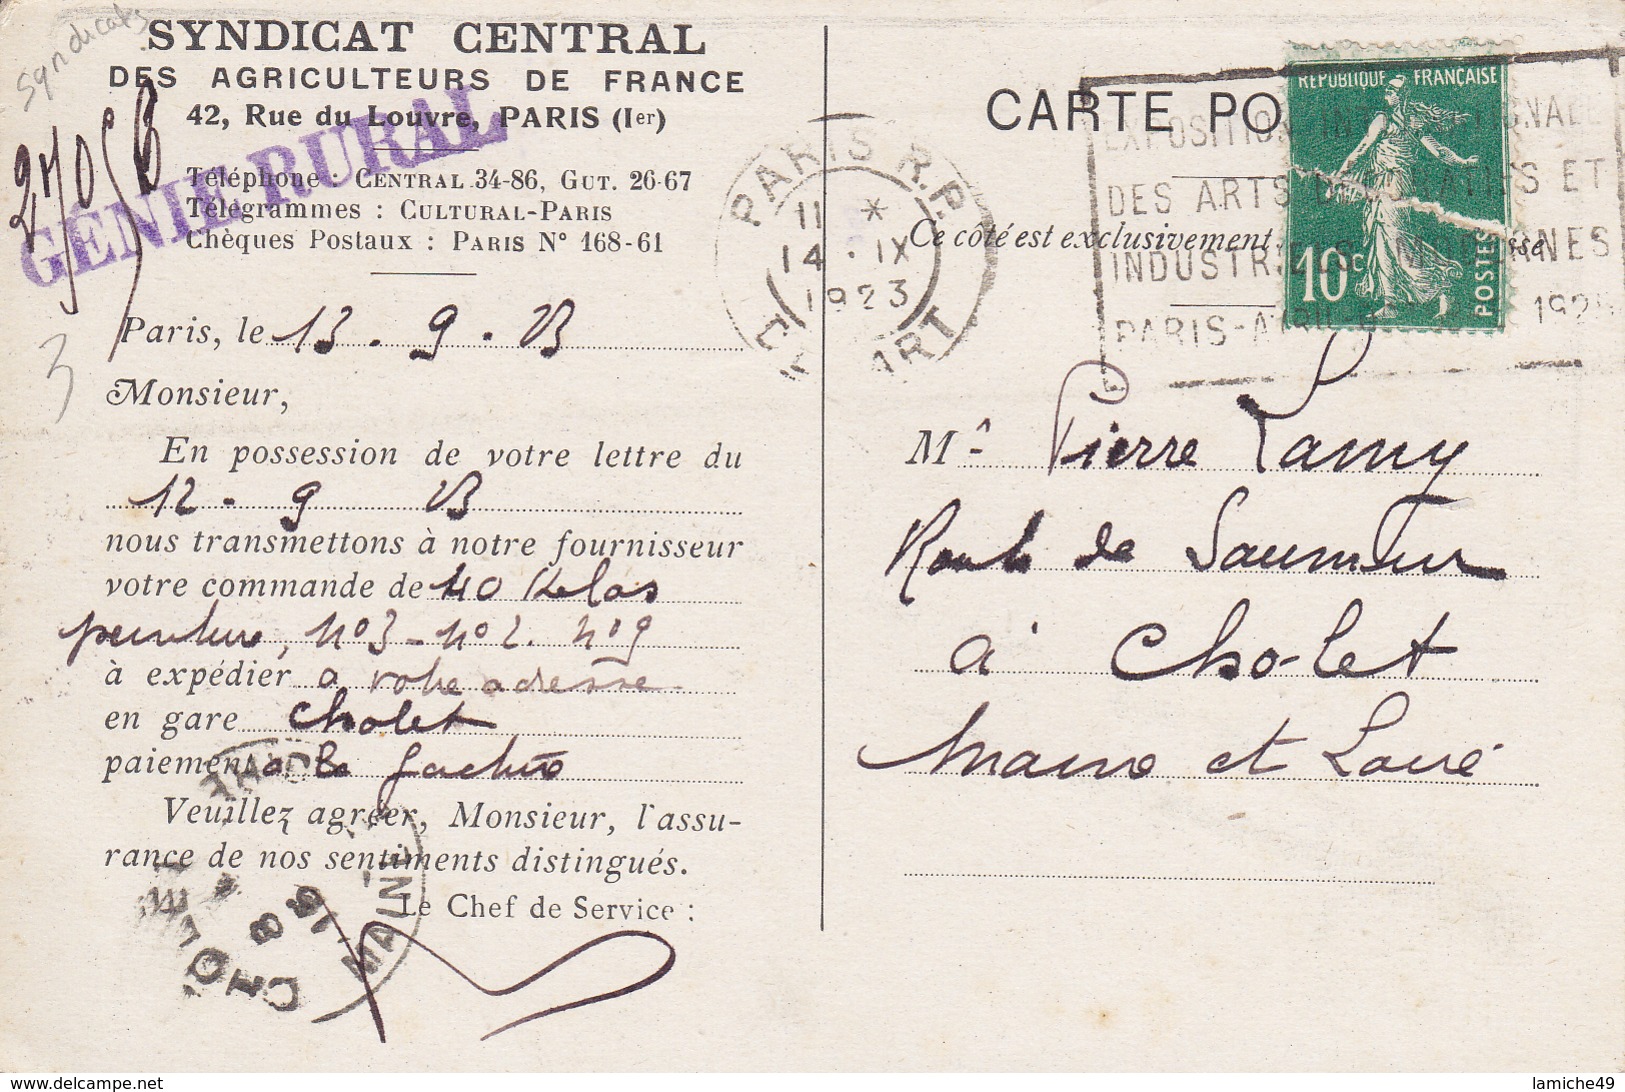 Syndicats
SYNDICAT CENTRAL
DES AGRICULTEURS DE FRANCE
42, Rue du Louvre, PARIS (Ier)
GÉNIE RURAL
Téléphone : CENTRAL 34-86, GUT. 26-67
Télégrammes : CULTURAL-PARIS
Chèques Postaux : PARIS N° 168-61
3
Paris, le 13 . 9 . 23
Monsieur,
En possession de votre lettre du
12 - 9 23
nous transmettons à notre fournisseur
votre commande de 40 Kilos
peinture, n°3 - n°2. n°9
à expédier a votre adresse
en gare Cholet
paiement a la facture
Veuillez agréer, Monsieur, l'assu-
rance de nos sentiments distingués.
Le Chef de Service :
CHOLET
MAINE
15
8
PARIS R.P.
11 *
14 . IX
1923
DÉPART
CARTE PO
Ce côté est exclusivement
RÉPUBLIQUE FRANÇAISE
10c
POSTES
EXPOSITION IN NALE
DES ARTS DÉCORATIFS ET
INDUSTRIELS MODERNES
PARIS-AVRIL 192
Mr Pierre Lamy
Route de Saumur
à Cholet
Maine et Loire
www.delcampe.net
lamiche49